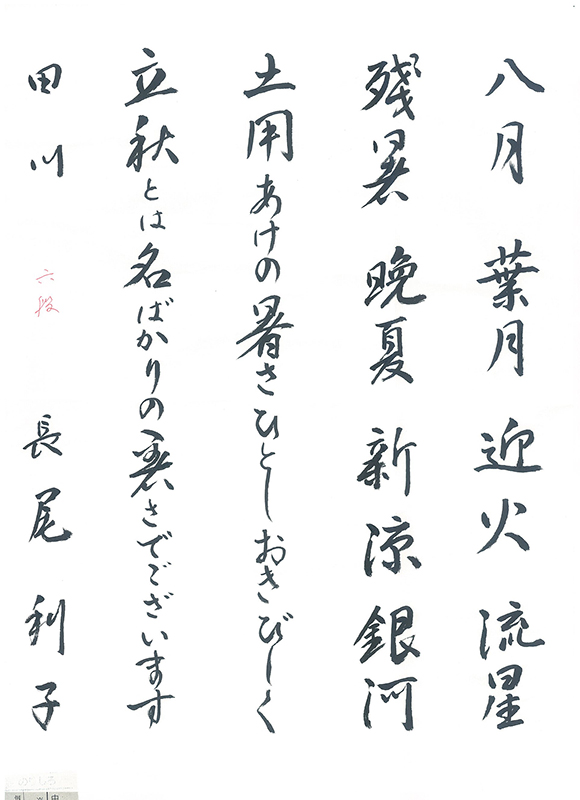 八月 葉月 迎火 流星
残暑 晩夏 新涼 銀河
土用あけの暑さひとしおきびしく
立秋とは名ばかりの暑さでございます
田川 六段 長尾利子